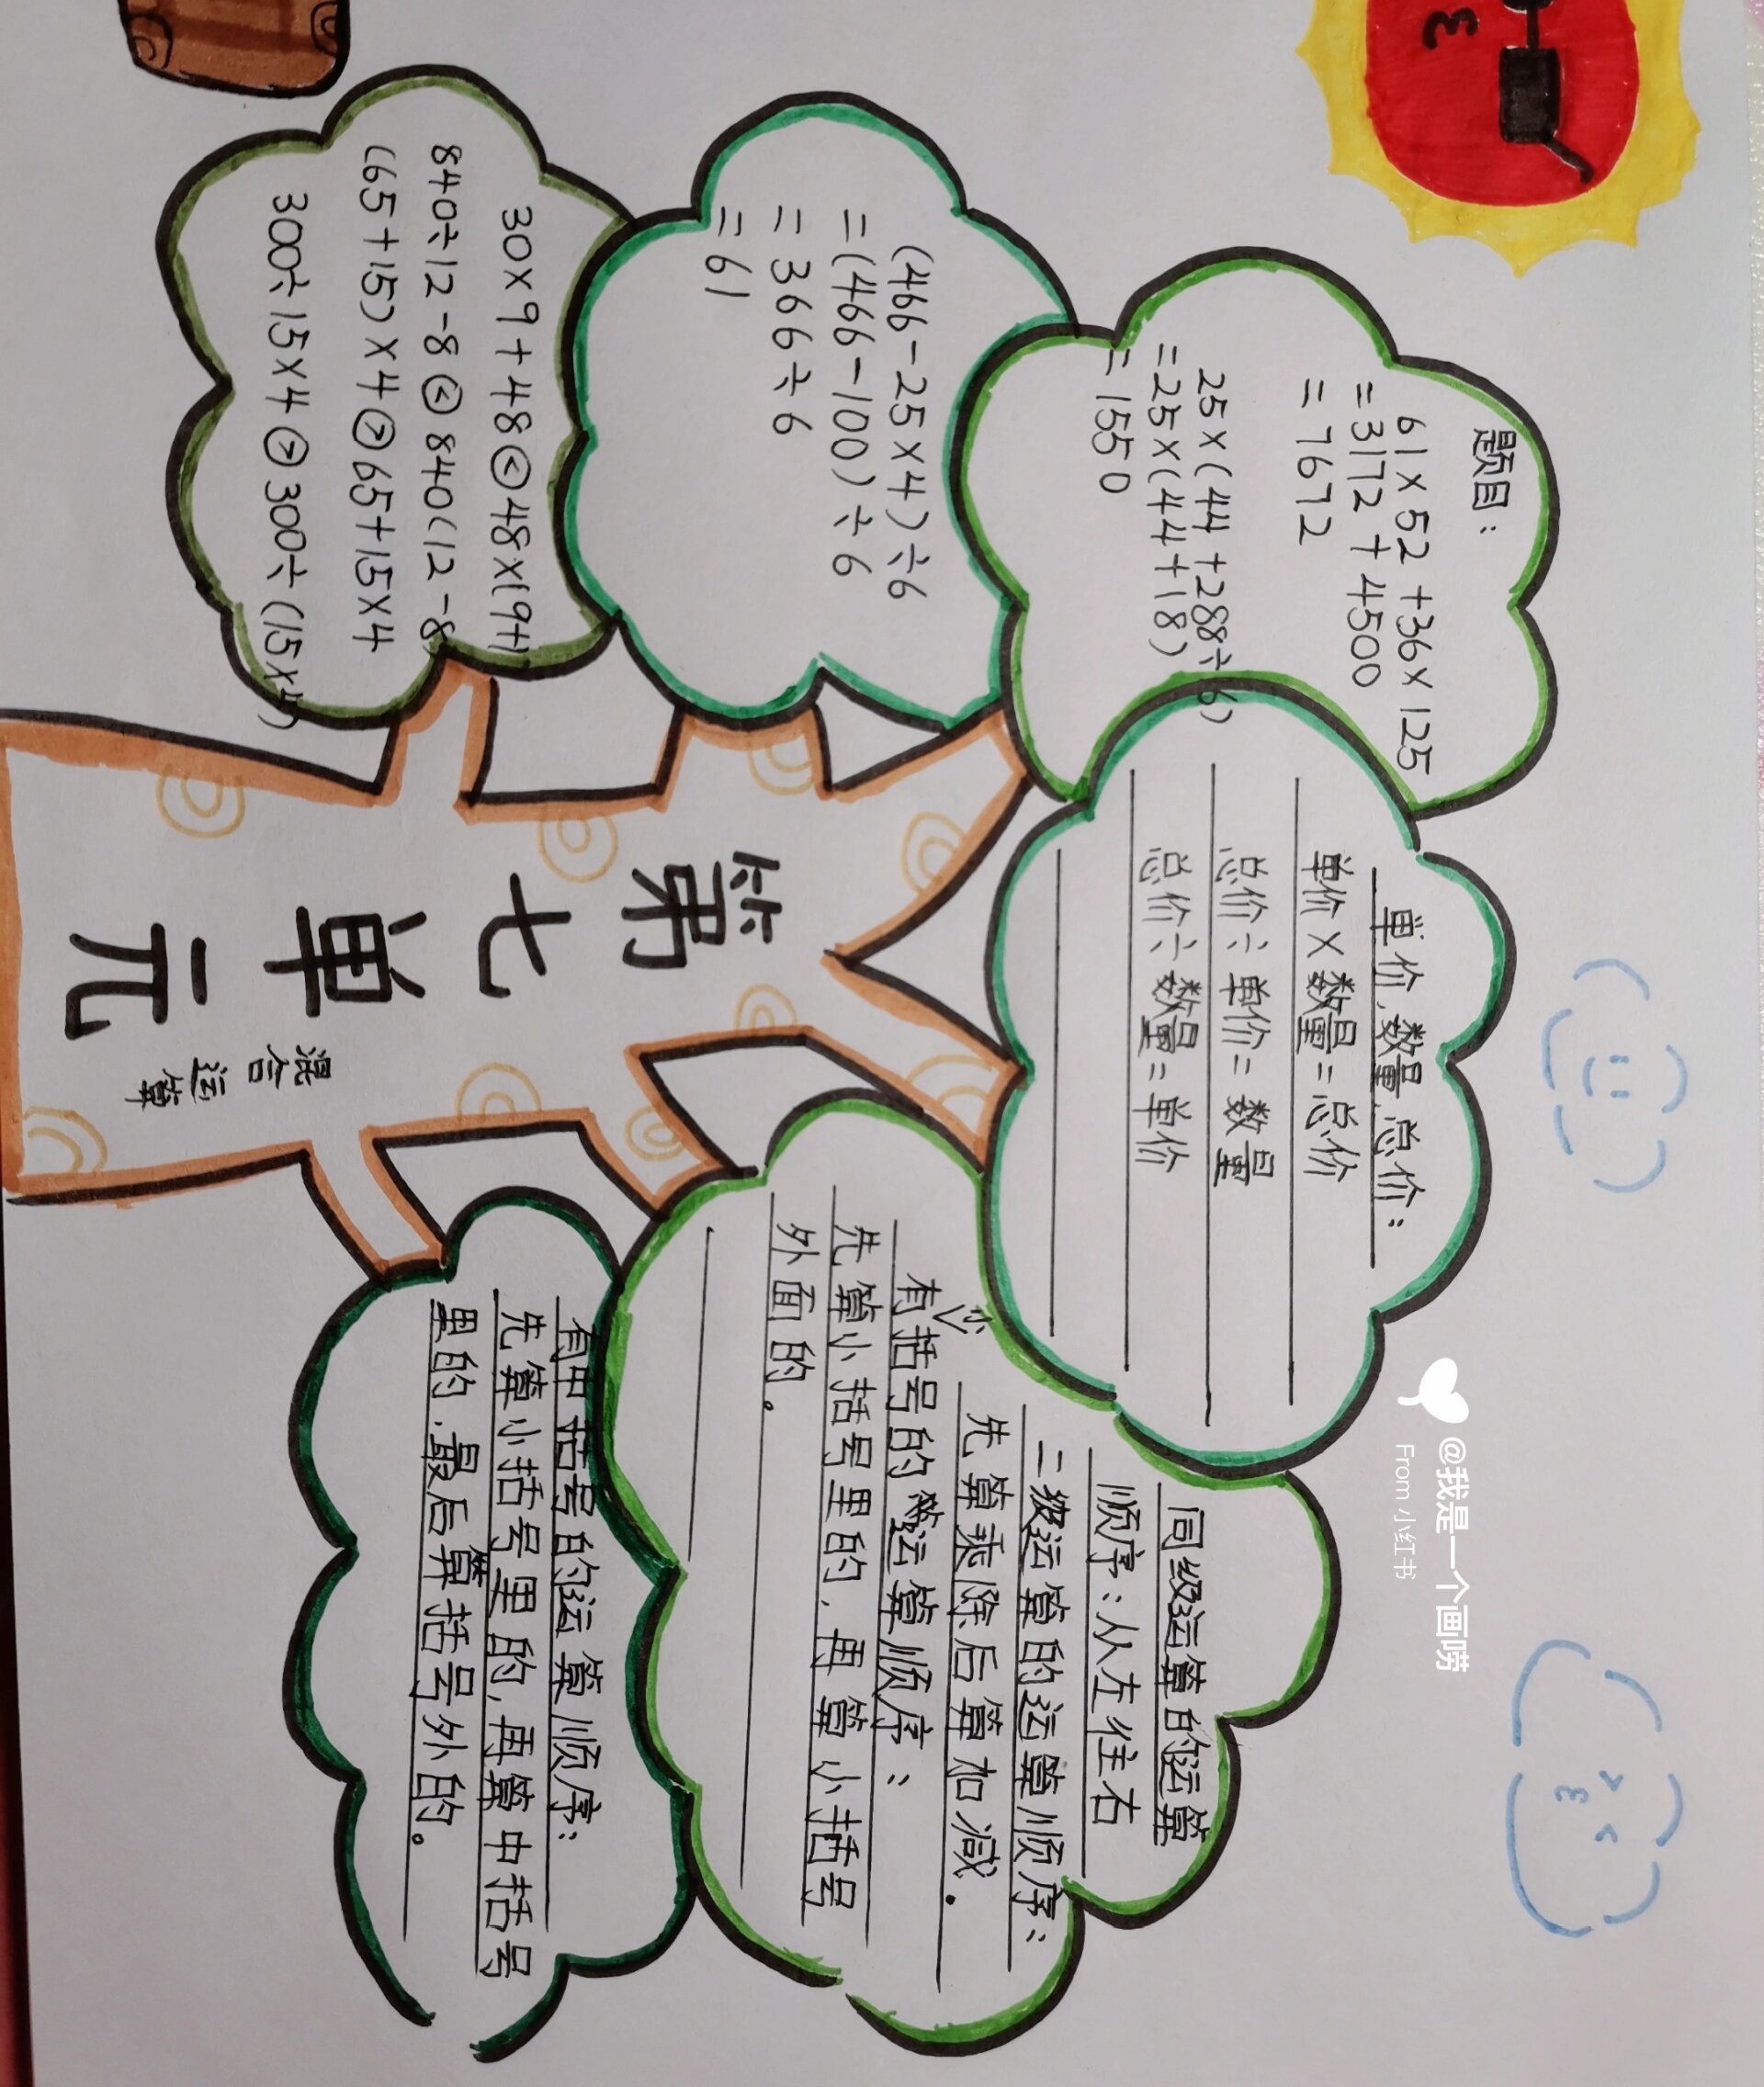 题目：
61×52+36×125
=3172+4500
=7672
25×(44+288÷16)
=25×(44+18)
=1550
(466-25×4)÷6
=(466-100)÷6
=366÷6
=61
30×9+48<48×(9+1
840÷12-8<840(12-8
(65+15)×4>65+15×4
300÷15×4>300÷(15×4)
单价,数量,总价：
单价×数量=总价
总价÷单价=数量
总价÷数量=单价
同级运算的运算
顺序：从左往右
二级运算的运算顺序：
先算乘除后算加减.
小
有括号的运算顺序：
先算小括号里的,再算小括号
外面的。
有中括号的运算顺序：
先算小括号里的,再算中括号
里的,最后算括号外的。
第七单元
混合运算
@我是一个画唠
From 小红书